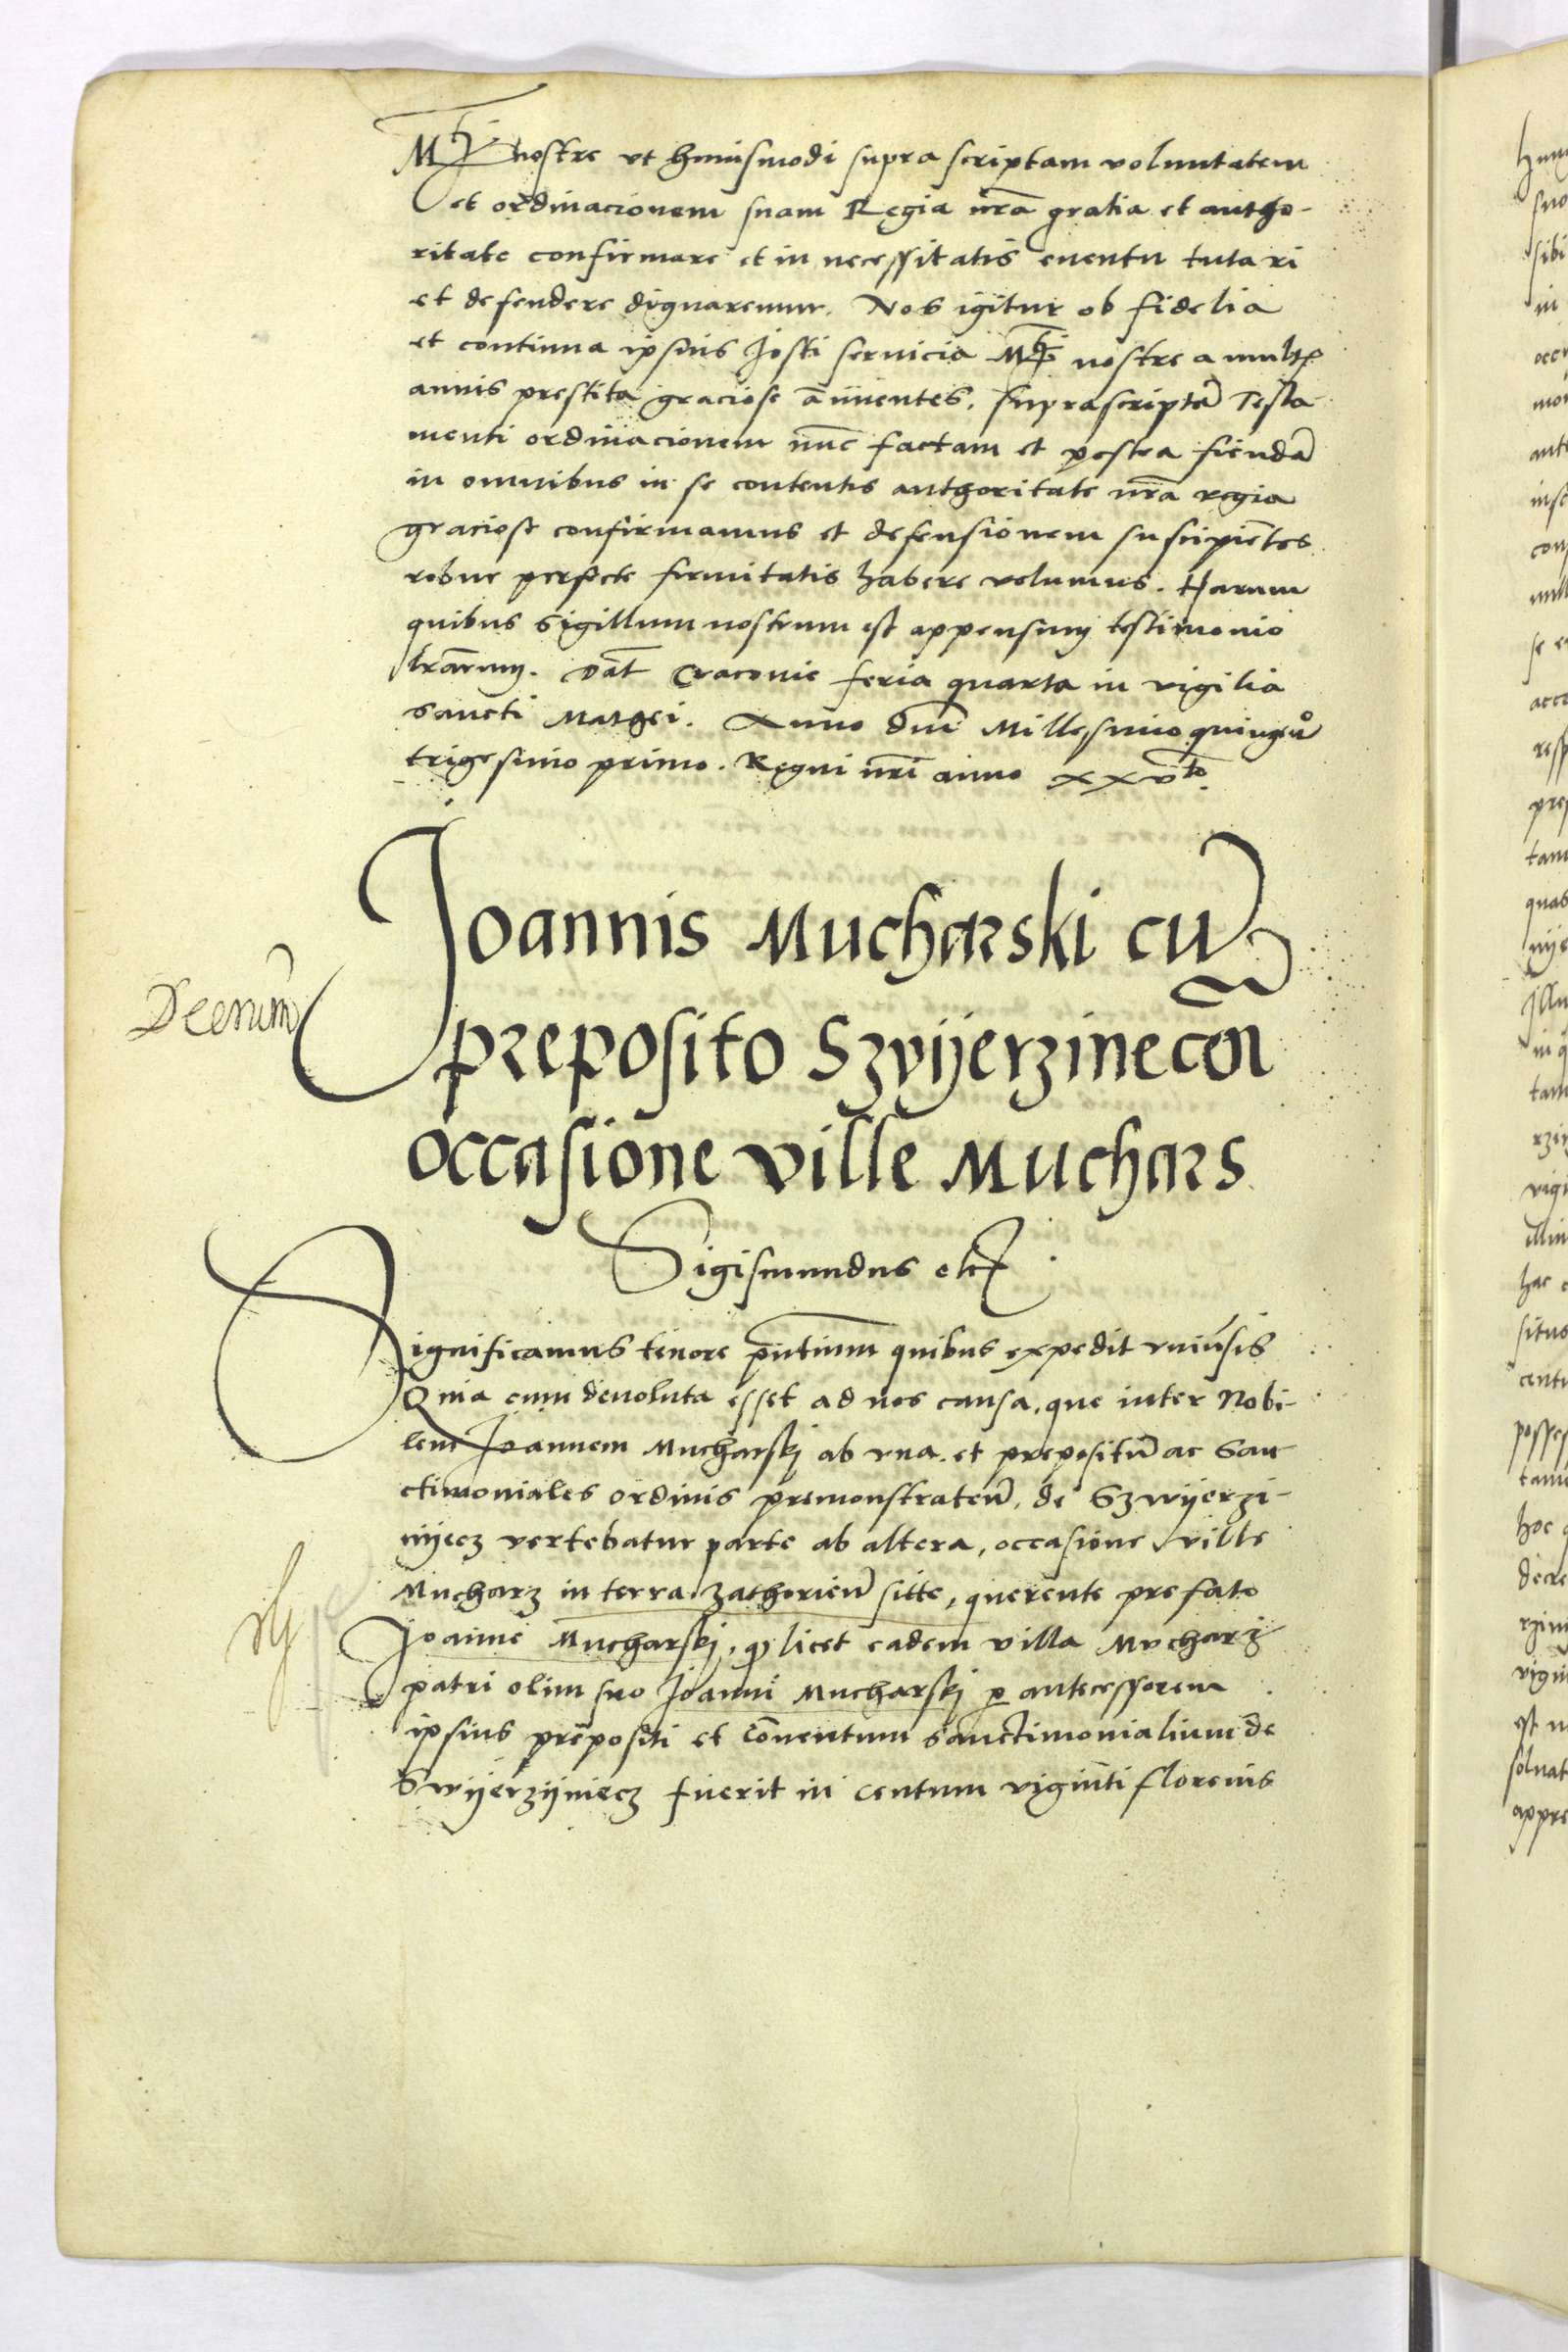 Mti nostre vt huiusmodi supra scriptam voluntatem
et ordinacionem suam Regia nra͞ gratia et autho-
ritate confirmare et in necessitatis euentu tutari
et defendere dignaremur. Nos igitur ob fidelia
et continua ipsius Josti seruicia Mti nostre a mult
annis prestita graciose a͞nuentes. suprascripta͞ Testa
menti ordinacionem nu͞c factam et postea fienda͞
in omnibus in se contentis authoritate nra͞ regia
graciose confirmamus et defensionem suscipie͞tes
robur perfecte firmitatis habere volumus. Harum
quibus sigillum nostrum est appensum testimonio
lra͞rum. Dat͞ Cracouie feria quarta in vigilia
sancti Mathei. Anno dni͞ Millesimo quinge͞o
trigesimo primo. Regni nri͞ anno xxvto.
Joannis Mucharski cu͞
preposito Szvijerzinecen͞
occasione ville Muchars
Sigismundus etc
Significamus tenore pn͞tium quibus expedit vniu͞sis
Quia cum deuoluta esset ad nos causa, que inter Nobi-
lem Joannem Mucharskj ab vna. et prepositu͞ ac San
ctimoniales ordinis premonstraten͞. de Szwijerzi-
nijecz vertebatur parte ab altera, occasione ville
Mucharz in terra zathorien͞ sitte, querente prefato
Joanne Mucharskj, q licet eadem villa Mvcharz
patri olim suo Joanni Mucharskj p antecessorem
ipsius prepositi et Co͞nentum sanctimonialium de
Swijerzijniecz fuerit in centum viginti florenis